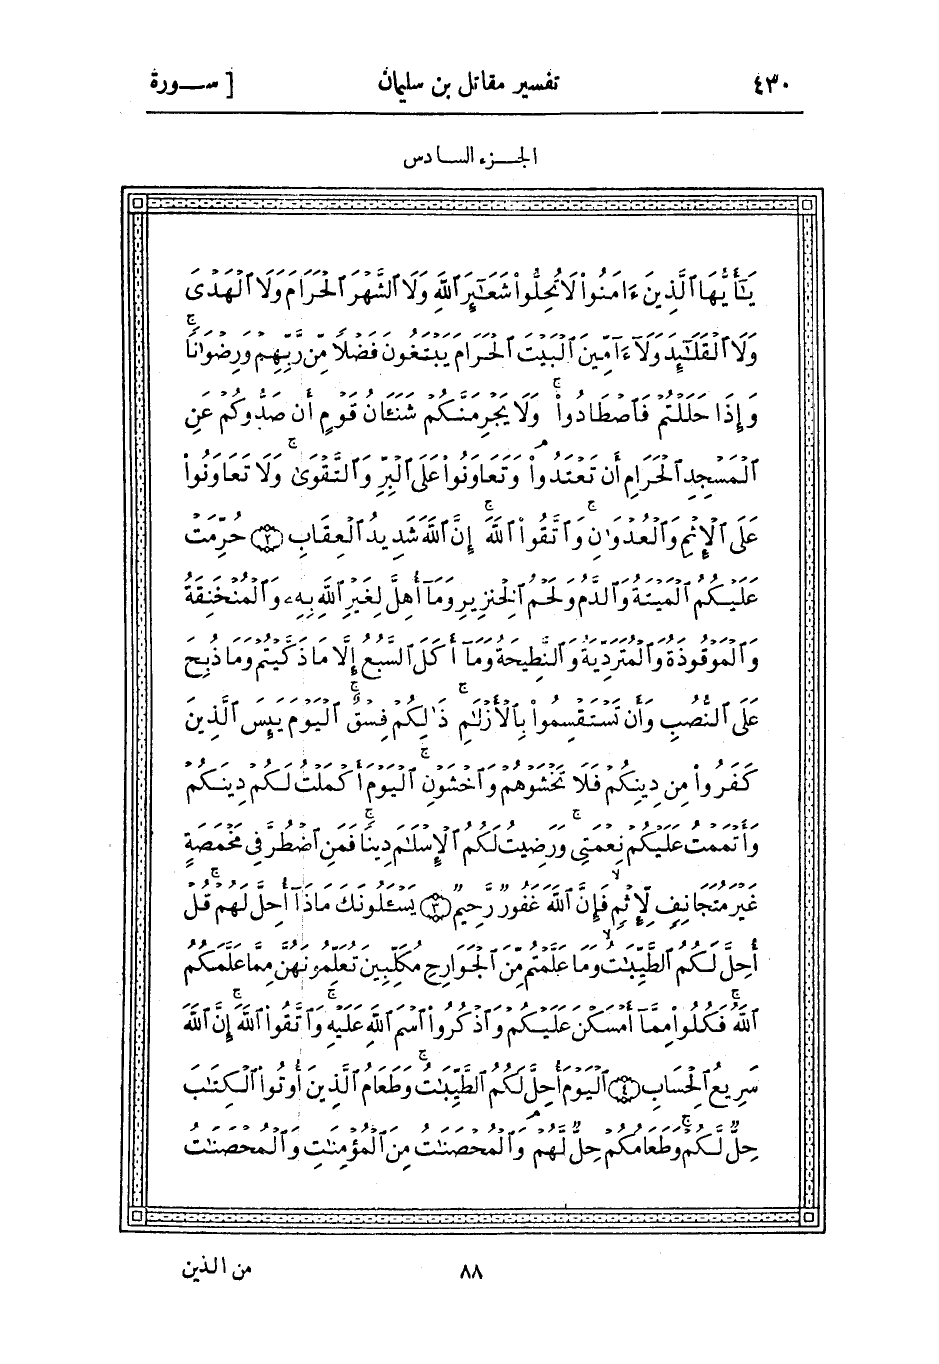 ٤٣٠ تفسير مقاتل بن سليمان [ ســورة
الجــزء السادس
يَـٰٓأَيُّهَا ٱلَّذِينَ ءَامَنُوا۟ لَا تُحِلُّوا۟ شَعَـٰٓئِرَ ٱللَّهِ وَلَا ٱلشَّهْرَ ٱلْحَرَامَ وَلَا ٱلْهَدْىَ
وَلَا ٱلْقَلَـٰٓئِدَ وَلَآ ءَآمِّينَ ٱلْبَيْتَ ٱلْحَرَامَ يَبْتَغُونَ فَضْلًا مِّن رَّبِّهِمْ وَرِضْوَٰنًا ۚ
وَإِذَا حَلَلْتُمْ فَٱصْطَادُوا۟ ۚ وَلَا يَجْرِمَنَّكُمْ شَنَـَٔانُ قَوْمٍ أَن صَدُّوكُمْ عَنِ
ٱلْمَسْجِدِ ٱلْحَرَامِ أَن تَعْتَدُوا۟ ۘ وَتَعَاوَنُوا۟ عَلَى ٱلْبِرِّ وَٱلتَّقْوَىٰ ۖ وَلَا تَعَاوَنُوا۟
عَلَى ٱلْإِثْمِ وَٱلْعُدْوَٰنِ ۚ وَٱتَّقُوا۟ ٱللَّهَ ۖ إِنَّ ٱللَّهَ شَدِيدُ ٱلْعِقَابِ ﴿٢﴾ حُرِّمَتْ
عَلَيْكُمُ ٱلْمَيْتَةُ وَٱلدَّمُ وَلَحْمُ ٱلْخِنزِيرِ وَمَآ أُهِلَّ لِغَيْرِ ٱللَّهِ بِهِۦ وَٱلْمُنْخَنِقَةُ
وَٱلْمَوْقُوذَةُ وَٱلْمُتَرَدِّيَةُ وَٱلنَّطِيحَةُ وَمَآ أَكَلَ ٱلسَّبُعُ إِلَّا مَا ذَكَّيْتُمْ وَمَا ذُبِحَ
عَلَى ٱلنُّصُبِ وَأَن تَسْتَقْسِمُوا۟ بِٱلْأَزْلَـٰمِ ۚ ذَٰلِكُمْ فِسْقٌ ۗ ٱلْيَوْمَ يَئِسَ ٱلَّذِينَ
كَفَرُوا۟ مِن دِينِكُمْ فَلَا تَخْشَوْهُمْ وَٱخْشَوْنِ ۚ ٱلْيَوْمَ أَكْمَلْتُ لَكُمْ دِينَكُمْ
وَأَتْمَمْتُ عَلَيْكُمْ نِعْمَتِى وَرَضِيتُ لَكُمُ ٱلْإِسْلَـٰمَ دِينًا ۚ فَمَنِ ٱضْطُرَّ فِى مَخْمَصَةٍ
غَيْرَ مُتَجَانِفٍ لِّإِثْمٍ ۙ فَإِنَّ ٱللَّهَ غَفُورٌ رَّحِيمٌ ﴿٣﴾ يَسْـَٔلُونَكَ مَاذَآ أُحِلَّ لَهُمْ ۖ قُلْ
أُحِلَّ لَكُمُ ٱلطَّيِّبَـٰتُ ۙ وَمَا عَلَّمْتُم مِّنَ ٱلْجَوَارِحِ مُكَلِّبِينَ تُعَلِّمُونَهُنَّ مِمَّا عَلَّمَكُمُ
ٱللَّهُ ۖ فَكُلُوا۟ مِمَّآ أَمْسَكْنَ عَلَيْكُمْ وَٱذْكُرُوا۟ ٱسْمَ ٱللَّهِ عَلَيْهِ ۖ وَٱتَّقُوا۟ ٱللَّهَ ۚ إِنَّ ٱللَّهَ
سَرِيعُ ٱلْحِسَابِ ﴿٤﴾ ٱلْيَوْمَ أُحِلَّ لَكُمُ ٱلطَّيِّبَـٰتُ ۖ وَطَعَامُ ٱلَّذِينَ أُوتُوا۟ ٱلْكِتَـٰبَ
حِلٌّ لَّكُمْ وَطَعَامُكُمْ حِلٌّ لَّهُمْ ۖ وَٱلْمُحْصَنَـٰتُ مِنَ ٱلْمُؤْمِنَـٰتِ وَٱلْمُحْصَنَـٰتُ
٨٨ من الذين